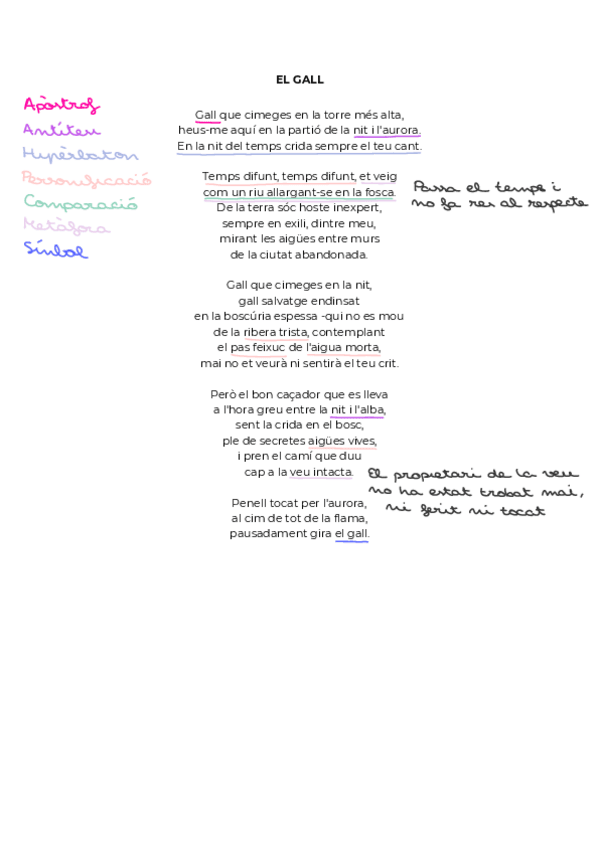 EL GALL
Apòstrof
Antítesi
Hipèrbaton
Personificació
Comparació
Metàfora
Símbol
Gall que cimeges en la torre més alta,
heus-me aquí en la partió de la nit i l'aurora.
En la nit del temps crida sempre el teu cant.
Temps difunt, temps difunt, et veig
com un riu allargant-se en la fosca.
De la terra sóc hoste inexpert,
sempre en exili, dintre meu,
mirant les aigües entre murs
de la ciutat abandonada.
Passa el temps i
no fa res al respecte
Gall que cimeges en la nit,
gall salvatge endinsat
en la boscúria espessa -qui no es mou
de la ribera trista, contemplant
el pas feixuc de l'aigua morta,
mai no et veurà ni sentirà el teu crit.
Però el bon caçador que es lleva
a l'hora greu entre la nit i l'alba,
sent la crida en el bosc,
ple de secretes aigües vives,
i pren el camí que duu
cap a la veu intacta.
El propietari de la veu
no ha estat trobat mai,
ni ferit ni tocat
Penell tocat per l'aurora,
al cim de tot de la flama,
pausadament gira el gall.